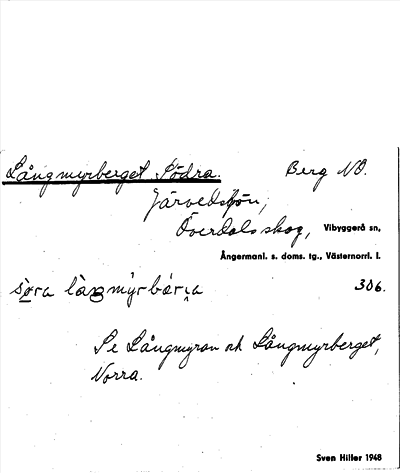 Långmyrberget Södra. Berg NO.
Järvedsfön,
Överdals skog, Vibyggerå sn,
Ångermanl. s. doms. tg., Västernorrl. l.
söra låŋmýrbärja 306.
Se Långmyran och Långmyrberget,
Norra.
Sven Hiller 1948